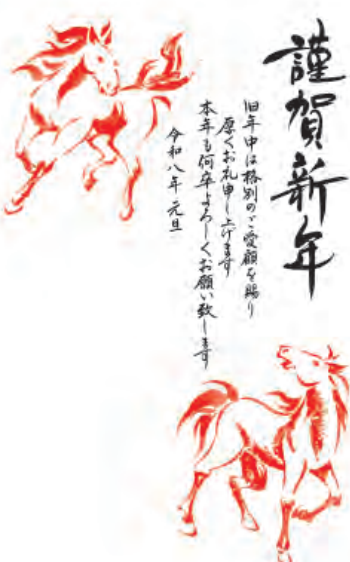 謹賀新年
旧年中は格別のご愛顧を賜り
厚くお礼申し上げます
本年も何卒よろしくお願い致します
令和八年 元旦